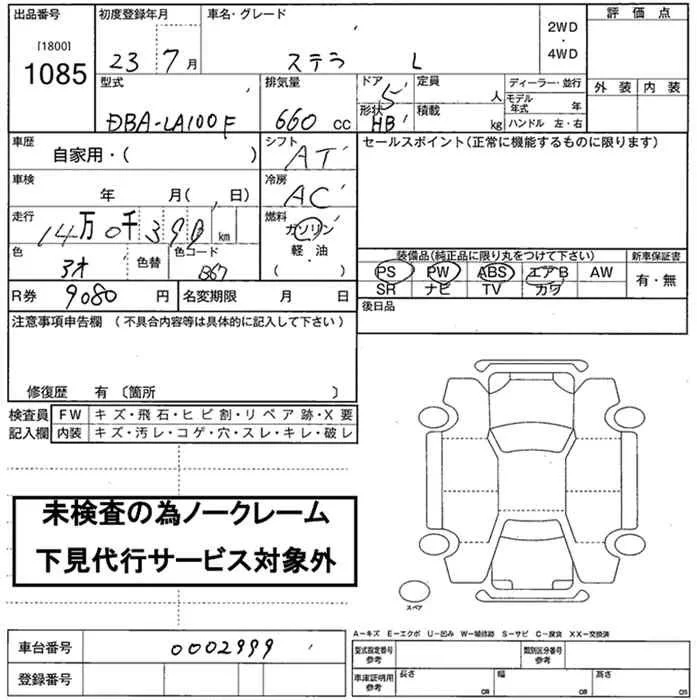 出品番号 初度登録年月 車名・グレード 評価点
[1800]
1085 23 7月 ステラ L 2WD・4WD
型式 排気量 ドア 定員 ディーラー・並行 外装 内装
DBA-LA100F 660 cc 5 人 モデル年式 年
形状 HB 積載 kg ハンドル 左・右
車歴 シフト セールスポイント(正常に機能するものに限ります)
自家用・( ) AT
車検 冷房
年 月( 、 日) AC
走行 燃料
14万0千390km ガソリン
色 色替 色コード 軽・油
アオ B67 ・( )
装備品(純正品に限り丸をつけて下さい) 新車保証書
PS PW ABS エアB AW 有・無
SR ナビ TV カワ
R券 9080円 名変期限 月 日 後日品
注意事項申告欄 (不具合内容等は具体的に記入して下さい)
修復歴 有〔箇所 〕
検査員 FW キズ・飛石・ヒビ割・リペア跡・X要
記入欄 内装 キズ・汚レ・コゲ・穴・スレ・キレ・破レ
未検査の為ノークレーム
下見代行サービス対象外
スペア
A-キズ E-エクボ U-凹み W-補修跡 S-サビ C-腐食 XX-交換済
車台番号 0002999 型式指定番号 参考 類別区分番号 参考
登録番号 車庫証明用 参考 長さ CM 幅 CM 高さ CM